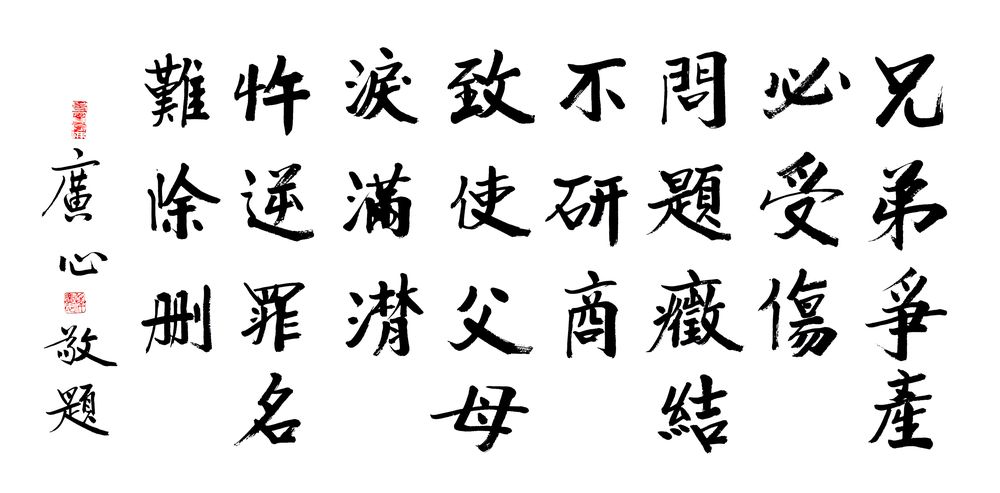 兄弟爭產
必受傷
問題癥結
不研商
致使父母
淚滿潸
忤逆罪名
難除刪
廣心敬題